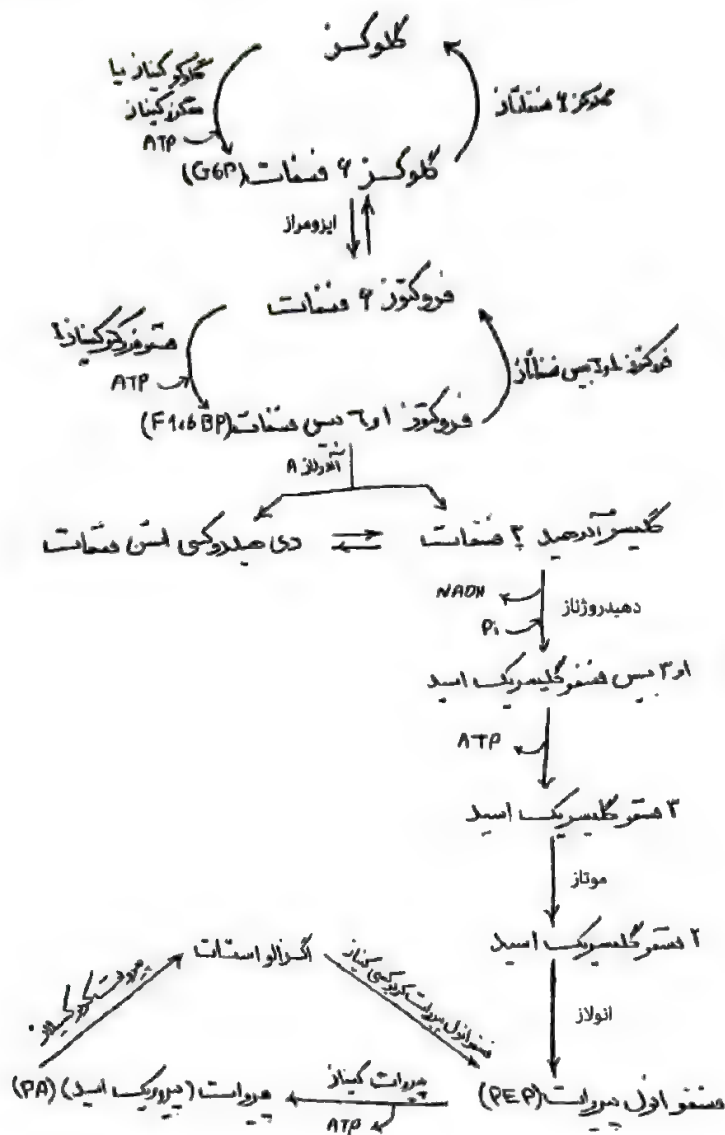 گلوکز
گلوکوکیناز یا
هگزوکیناز
ATP
گلوکز ۶ فسفاتاز
گلوکز ۶ فسفات (G6P)
ایزومراز
فروکتوز ۶ فسفات
فسفوفروکتوکیناز۱
ATP
فروکتوز ۱و۶ بیس فسفاتاز
فروکتوز ۱و۶ بیس فسفات (F1,6BP)
آلدولاز A
گلیسر آلدهید ۳ فسفات
دی هیدروکسی استن فسفات
NADH
دهیدروژناز
Pi
۱و۳ بیس فسفو گلیسریک اسید
ATP
۳ فسفو گلیسریک اسید
موتاز
۲ فسفو گلیسریک اسید
اگزالو استات
پیروات کربوکسیلاز
فسفو انول پیروات کربوکسی کیناز
انولاز
فسفو انول پیروات (PEP)
پیروات کیناز
ATP
پیروات (پیرویک اسید) (PA)